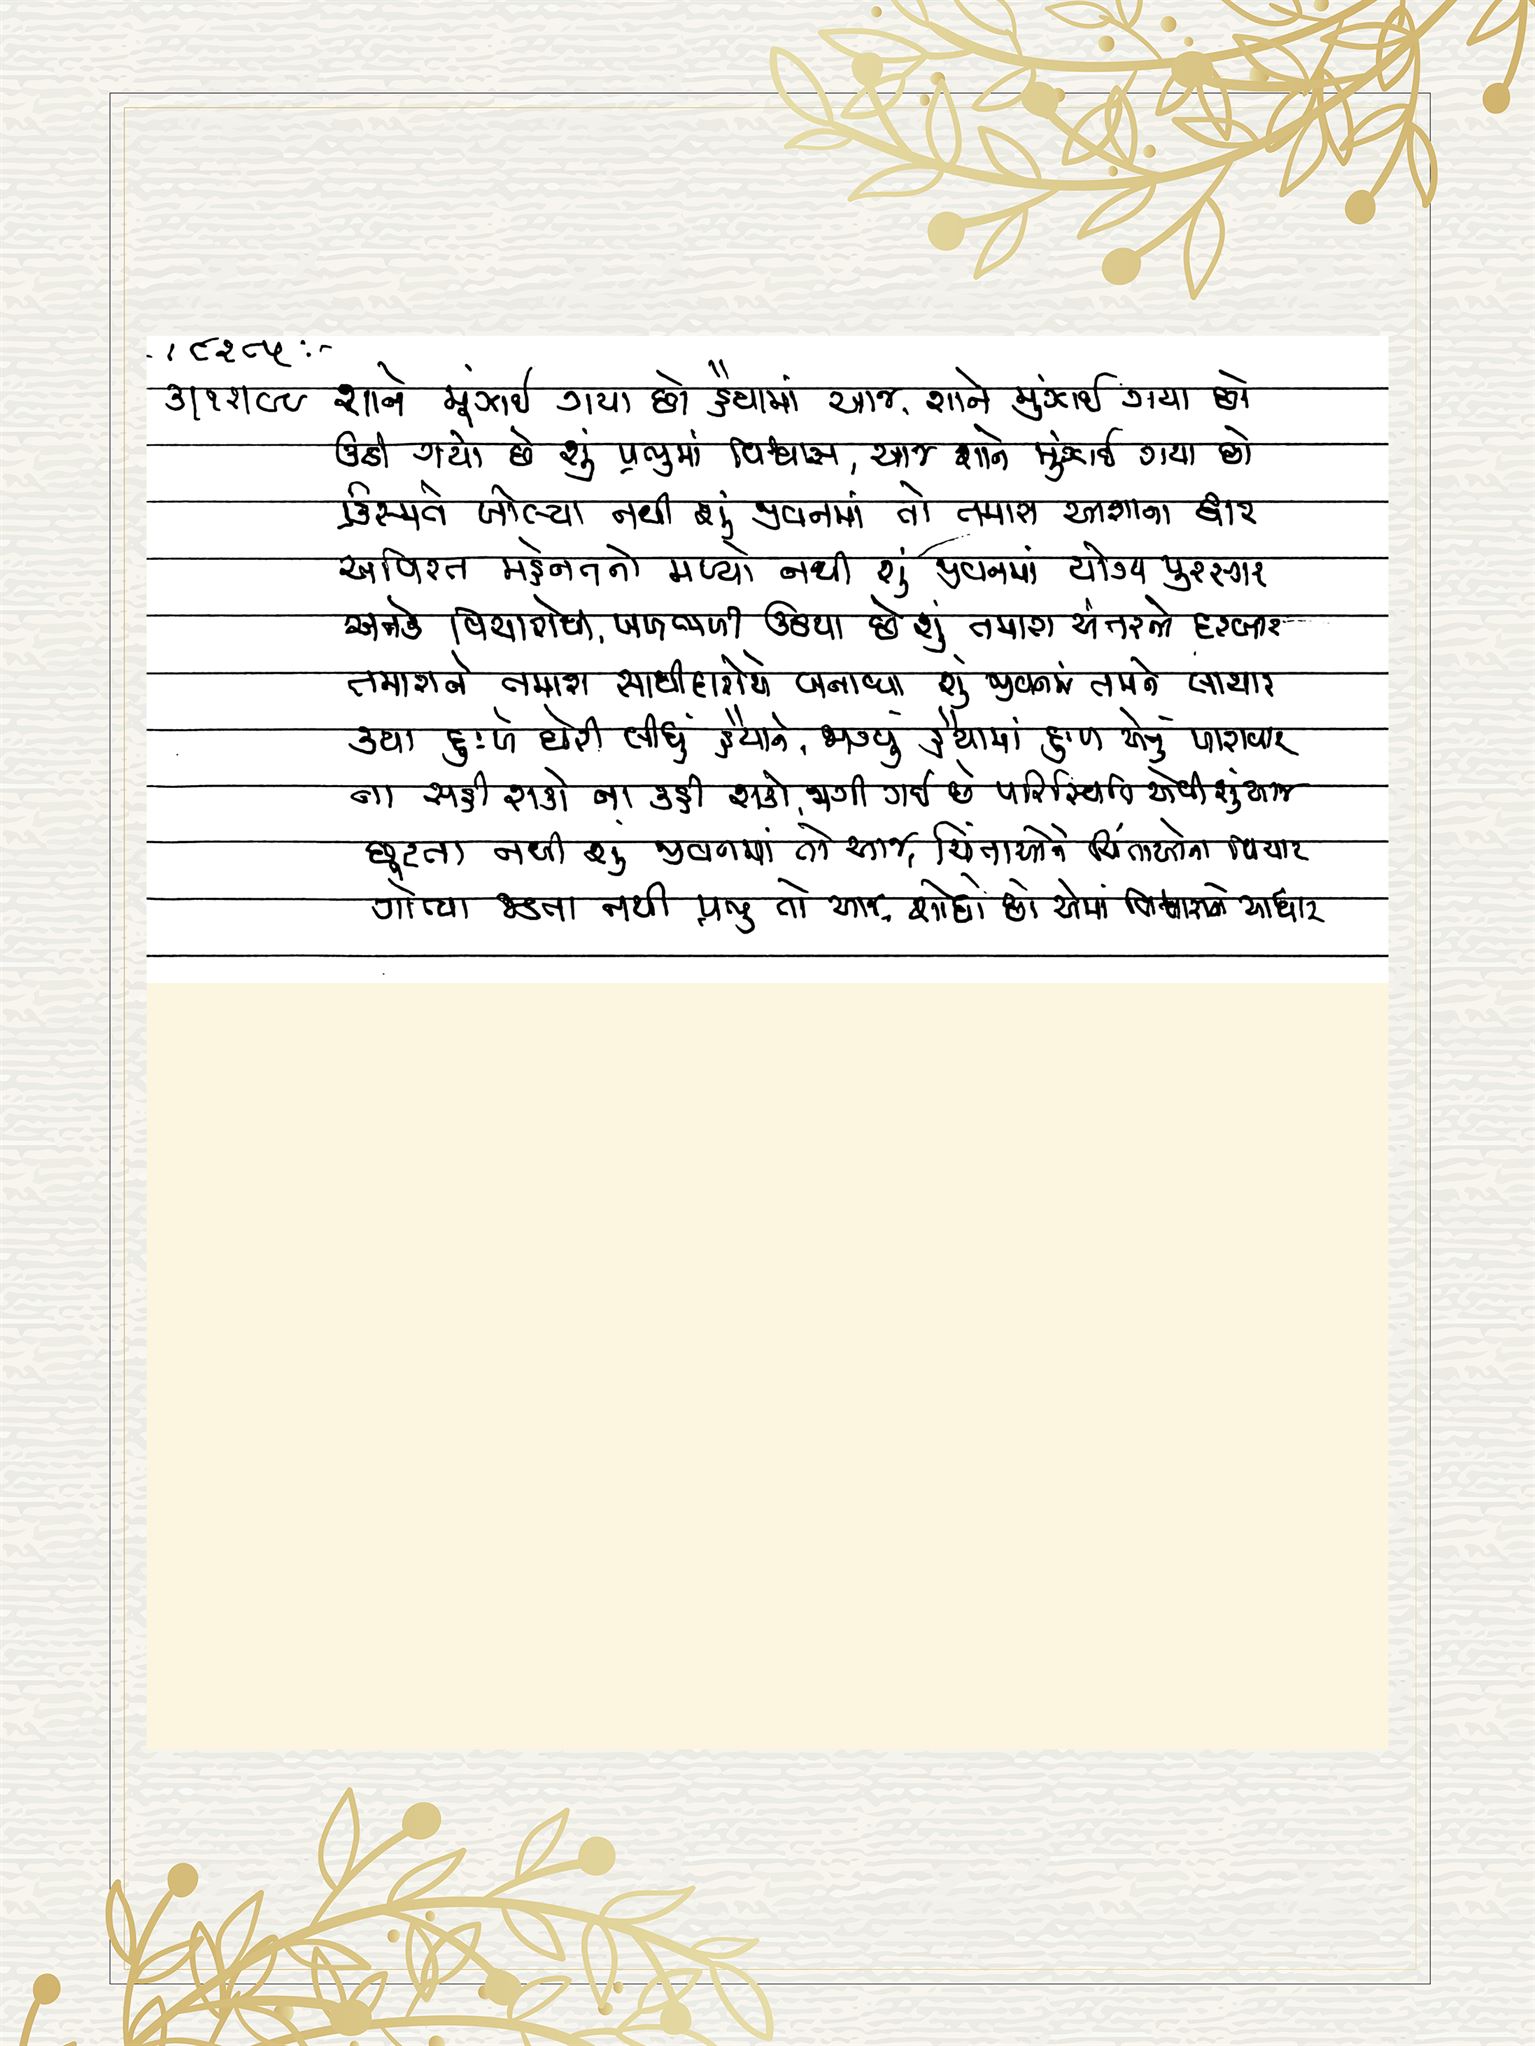 શાને મૂંઝાઈ ગયા છો હૈયામાં આજ, શાને મુંઝાઈ ગયા છો
ઉઠી ગયો છે શું પ્રભુમાં વિશ્વાસ, આજ શાને મુંઝાઈ ગયા છો
કિસ્મતે ખોલ્યા નથી શું જીવનમાં તો તમારા આશાના દ્વાર
અવિરત મહેનતનો મળ્યો નથી શું જીવનમાં યોગ્ય પુરસ્કાર
અનેક વિચારોથી, ખળભળી ઉઠયા છે શું તમારા અંતરના દરબાર
તમારાને તમારા સાથીદારોએ બનાવ્યા શું જીવનમાં તમને લાચાર
કયા દુઃખે ઘેરી લીધું હૈયાને, જાગ્યું હૈયામાં દુઃખ એનું પારાવાર
ના સહી શકો ના કહી શકો, જાગી ગઈ છે પરિસ્થિતિ એવી શું આજ
છૂટતા નથી શું જીવનમાં તો આજ, ચિંતાઓને ચિંતાઓના વિચાર
ગોત્યા જડતા નથી પ્રભુ તો આજ, શોધો છો એમાં વિશ્વાસને આધાર